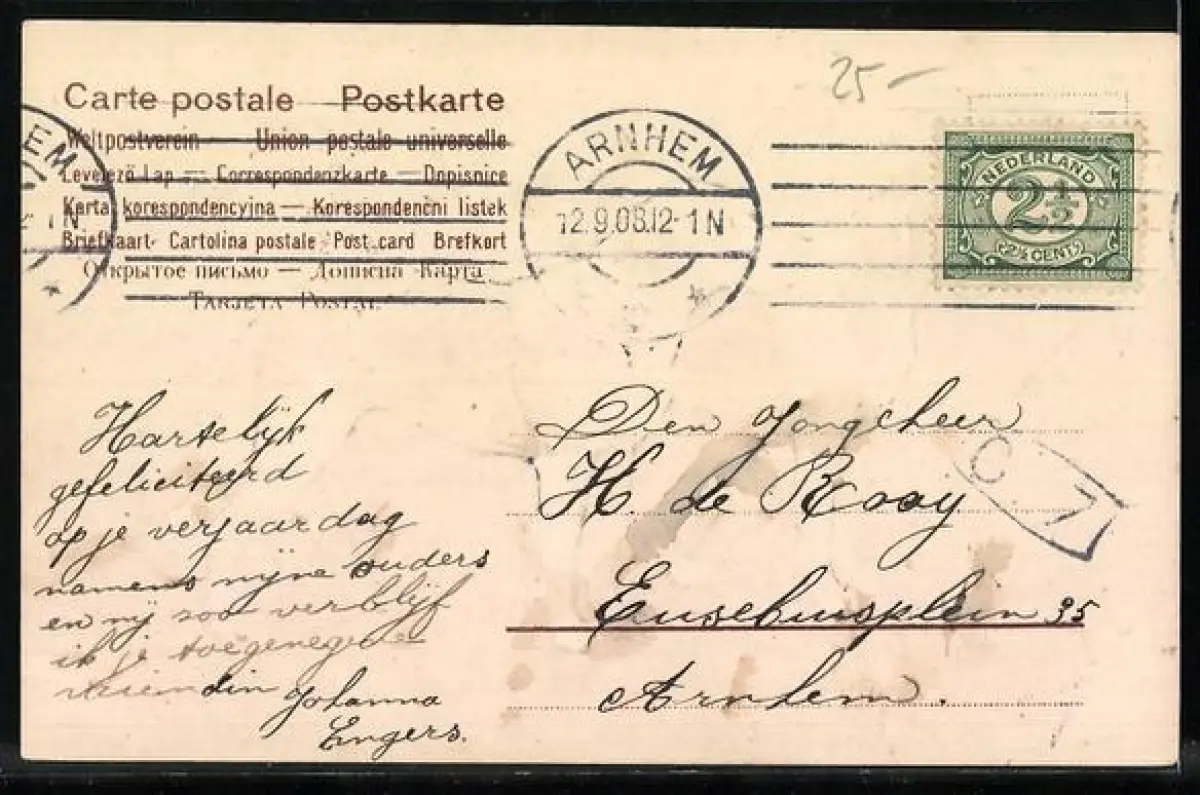 25-
Carte postale — Postkarte
Weltpostverein — Union postale universelle
Levelező Lap — Correspondenzkarte — Dopisnice
Karta korespondencyjna — Korespondenční listek
Briefkaart Cartolina postale Post card Brefkort
Открытое письмо — Дописна Карта
Tarjeta Postal
EM
1N
ARNHEM
12.9.08.12-1N
NEDERLAND
2½
(2½ CENT)
Hartelijk
gefeliciteerd
op je verjaardag
namens mijne ouders
en mij zoo verblijf
ik je toegenegene
vriendin Johanna
Engers.
Den Jongeheer
H. de Rooy
Eusebiusplein 35
Arnhem.
C. 7